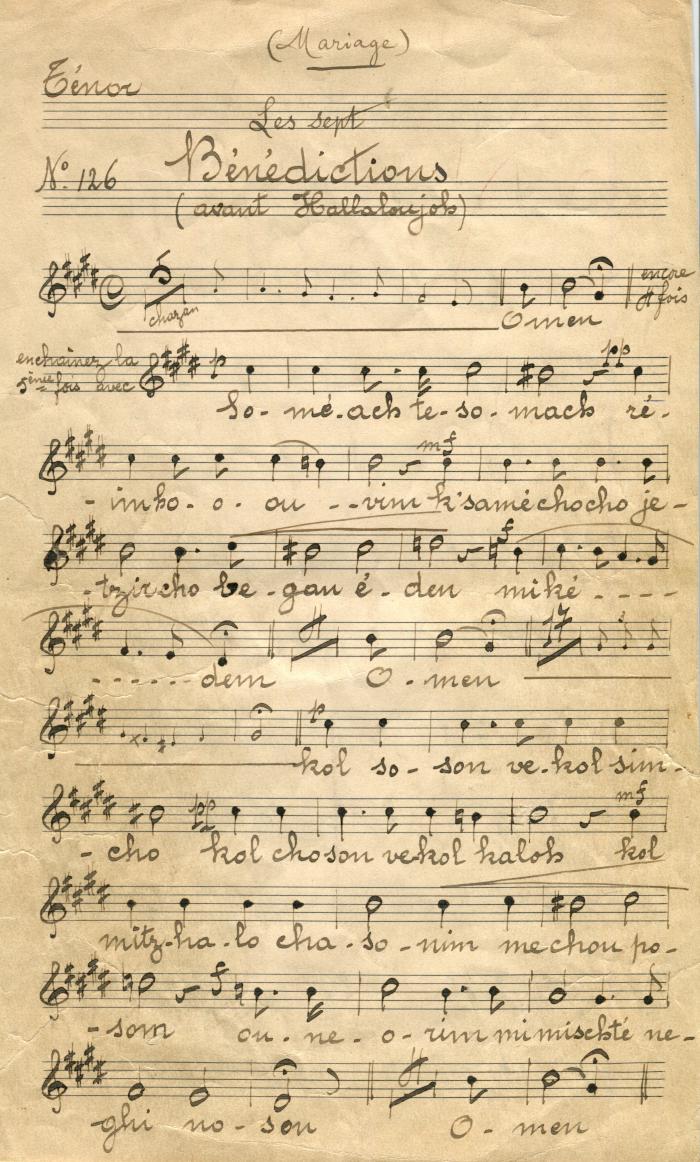 (Mariage)
Ténor
Les sept
Nº. 126 Bénédictions
(avant Hallaloujoh)
encore
4 fois
chazan
Omen
enchaînez la
5ème fois avec
p pp
So-mé-ach te-so-mach ré-
mf
-imho-o-ou--vim k'samêchocho je-
f
-tzircho be-gan é-den miké-----
4
------dem O-men
17
p
kol so-son ve-kol sim-
pp mf
-cho kol choson ve-kol kaloh kol
mitz-ha-lo cha-so-nim mechou po-
f
-som ou-ne-o-rim mimischté ne-
4
ghi no-son O-men